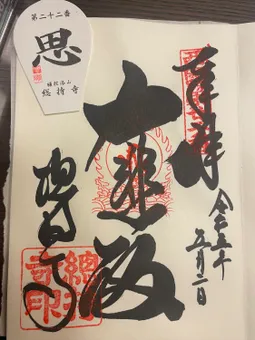 第二十二番
思
補陀洛山
総持寺
奉拝
令和五年
五月二日
大悲殿
総持寺
總持
寺印